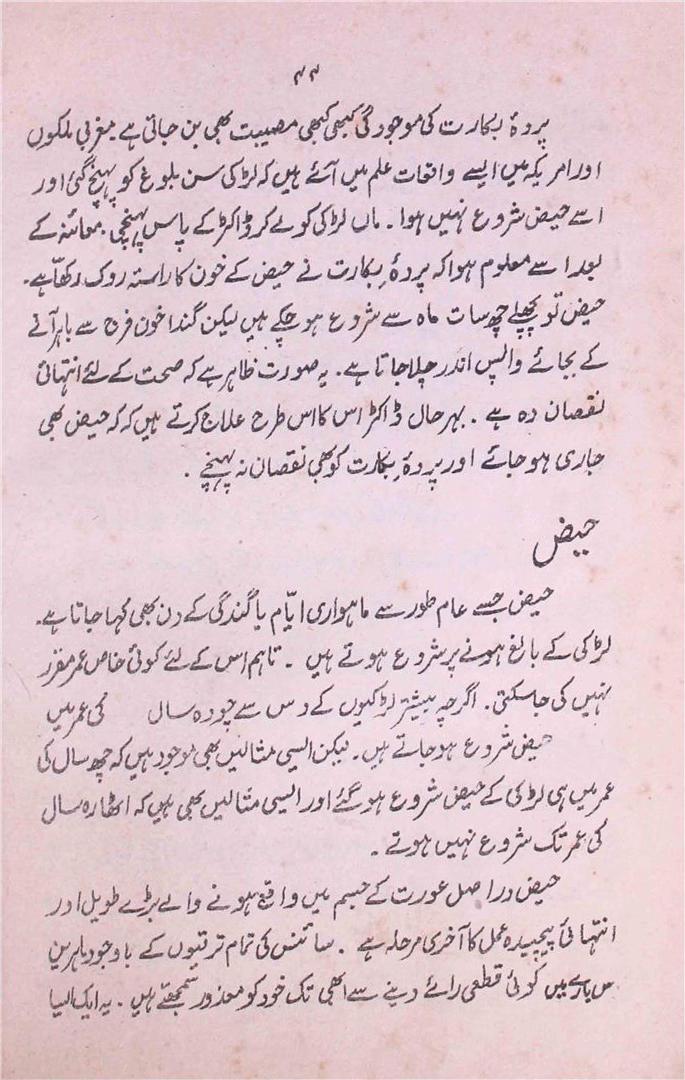 ۴۴
پردۂ بکارت کی موجودگی کبھی کبھی مصیبت بھی بن جاتی ہے۔ مغربی ملکوں
اور امریکہ میں ایسے واقعات علم میں آئے ہیں کہ لڑکی سن بلوغ کو پہنچ گئی اور
اسے حیض شروع نہیں ہوا۔ ماں لڑکی کو لے کر ڈاکٹر کے پاس پہنچی۔ معائنہ کے
بعد اسے معلوم ہوا کہ پردۂ بکارت نے حیض کے خون کا راستہ روک رکھا ہے۔
حیض تو پچھلے چھ سات ماہ سے شروع ہو چکے ہیں لیکن گندا خون فرج سے باہر آنے
کے بجائے واپس اندر چلا جاتا ہے۔ یہ صورت ظاہر ہے کہ صحت کے لئے انتہائی
نقصان دہ ہے۔ بہر حال ڈاکٹر اس کا اس طرح علاج کرتے ہیں کہ کہ حیض بھی
جاری ہو جائے اور پردۂ بکارت کو بھی نقصان نہ پہنچے۔
حیض
حیض جسے عام طور سے ماہواری ایّام یا گندگی کے دن بھی کہا جاتا ہے۔
لڑکی کے بالغ ہونے پر شروع ہوتے ہیں۔ تاہم اس کے لئے کوئی خاص عمر مقرر
نہیں کی جا سکتی۔ اگرچہ بیشتر لڑکیوں کے دس سے چودہ سال کی عمر میں
حیض شروع ہو جاتے ہیں۔ لیکن ایسی مثالیں بھی موجود ہیں کہ چھ سال کی
عمر میں ہی لڑکی کے حیض شروع ہو گئے اور ایسی مثالیں بھی ہیں کہ اٹھارہ سال
کی عمر تک شروع نہیں ہوتے۔
حیض دراصل عورت کے جسم میں واقع ہونے والے بڑے طویل اور
انتہائی پیچیدہ عمل کا آخری مرحلہ ہے۔ سائنس کی تمام ترقیوں کے باوجود ماہرین
س بارے میں کوئی قطعی رائے دینے سے ابھی تک خود کو معذور سمجھتے ہیں۔ یہ ایک ایسا